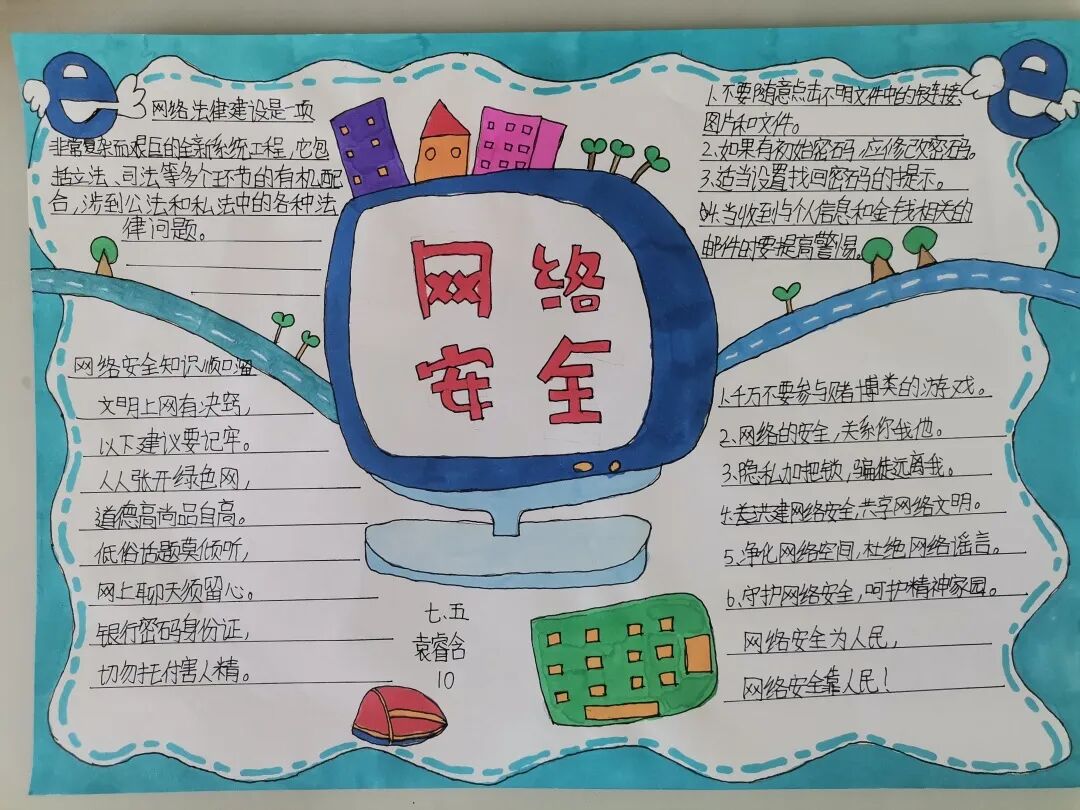 网络法律建设是一项
非常复杂而艰巨的全新系统工程,它包
括立法、司法等多个环节的有机配
合,涉到公法和私法中的各种法
律问题。
1.不要随意点击不明文件中的链接、
图片和文件。
2.如果有初始密码,应修改密码。
3.适当设置找回密码的提示。
4.当收到与个人信息和金钱相关的
邮件时要提高警惕。
网络
安全
网络安全知识顺口溜
文明上网有决窍,
以下建议要记牢。
人人张开绿色网,
道德高尚品自高。
低俗话题莫倾听,
网上聊天须留心。
银行密码身份证,
切勿托付害人精。
七、五
袁睿含
10
1.千万不要参与赌博类的游戏。
2.网络的安全,关系你我他。
3.隐私加把锁,骗徒远离我。
4.共建网络安全,共享网络文明。
5.净化网络空间,杜绝网络谣言。
6.守护网络安全,呵护精神家园。
网络安全为人民,
网络安全靠人民!